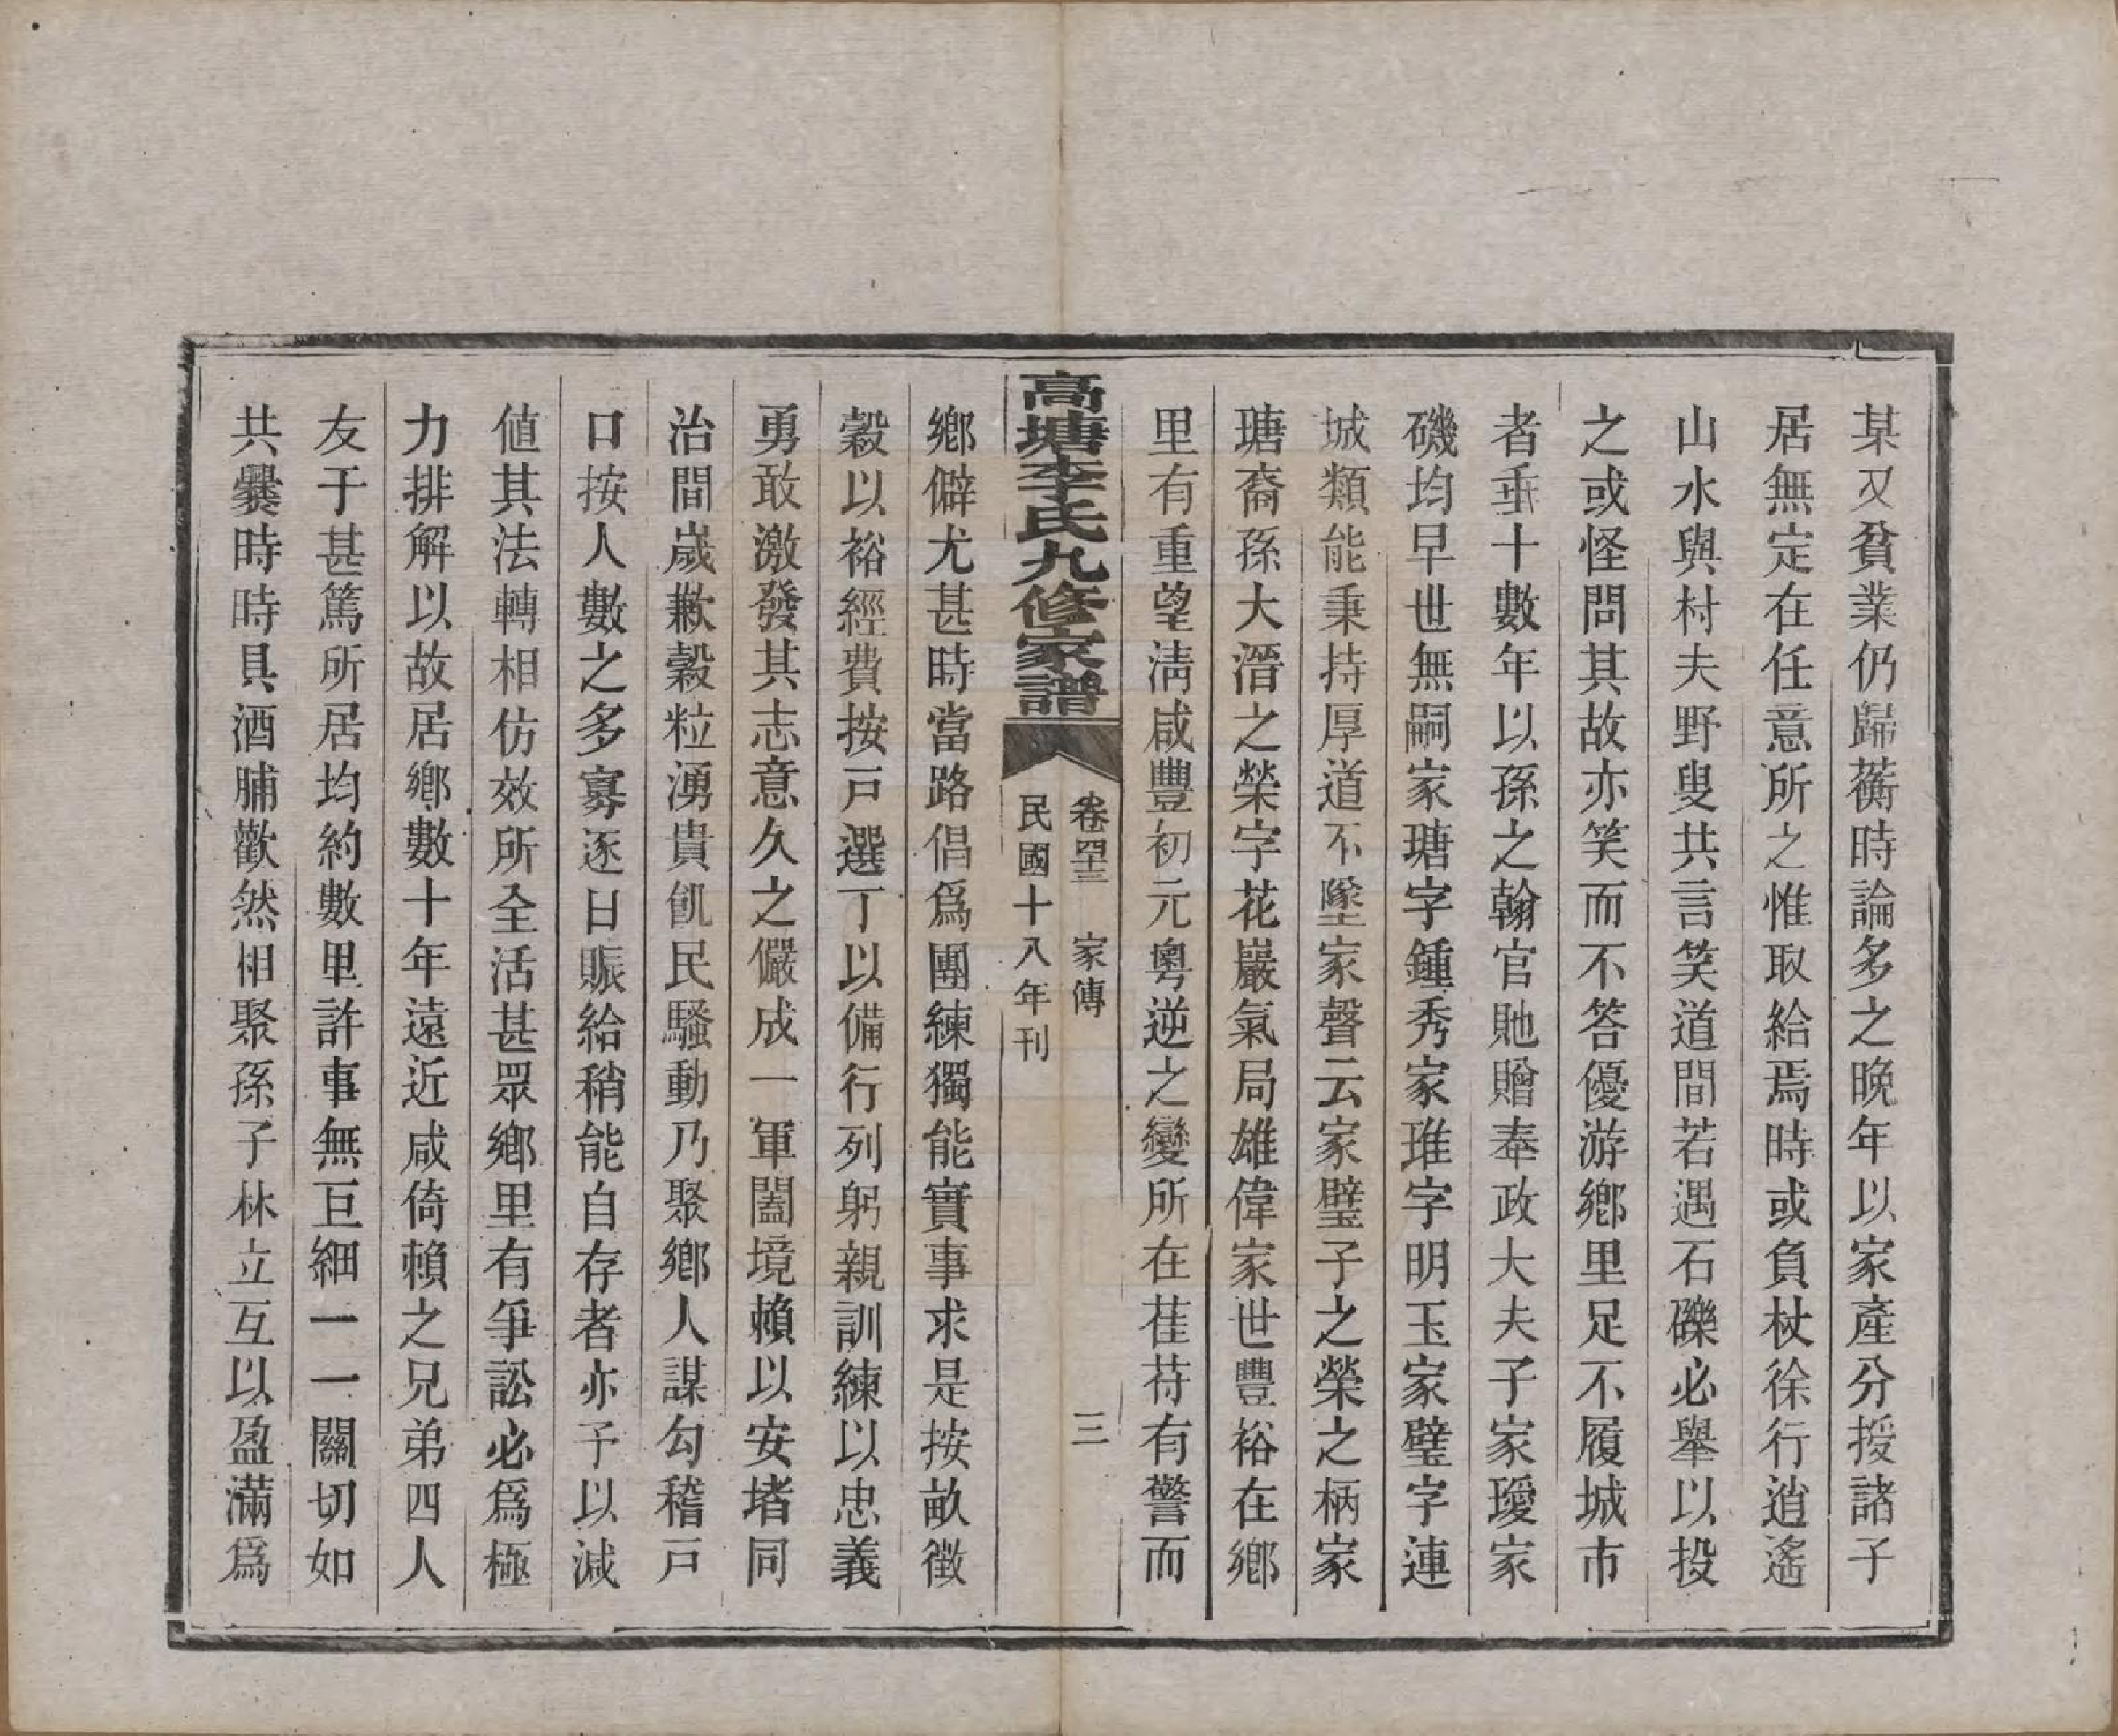 某又貧業仍歸蘅時論多之晚年以家產分授諸子
居無定在任意所之惟取給焉時或負杖徐行逍遙
山水與村夫野叟共言笑道間若遇石礫必舉以投
之或怪問其故亦笑而不答優游鄉里足不履城市
者垂十數年以孫之翰官貤贈奉政大夫子家璦家
磯均早世無嗣家瑭字鍾秀家琟字明玉家璧字連
城類能秉持厚道不墜家聲云家璧子之榮之柄家
瑭裔孫大濳之榮字花巖氣局雄偉家世豐裕在鄉
里有重望淸咸豐初元粵逆之變所在萑苻有警而
高塘李氏九修家譜
卷四十三 家傳
三
民國十八年刊
鄉僻尤甚時當路倡爲團練獨能實事求是按畝徵
穀以裕經費按戸選丁以備行列躬親訓練以忠義
勇敢激發其志意久之儼成一軍闔境賴以安堵同
治間嵗歉穀粒湧貴飢民騷動乃聚鄉人謀勾稽戸
口按人數之多寡逐日賑給稍能自存者亦予以減
値其法轉相仿效所全活甚眾鄉里有爭訟必爲極
力排解以故居鄉數十年遠近咸倚賴之兄弟四人
友于甚篤所居均約數里許事無巨細一一關切如
共爨時時具酒脯歡然相聚孫子林立互以盈滿爲